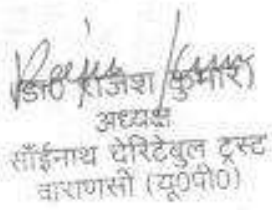 (डा० राजेश कुमार)
अध्यक्ष
साँईनाथ चेरिटेबुल ट्रस्ट
वाराणसी (यू0पी0)